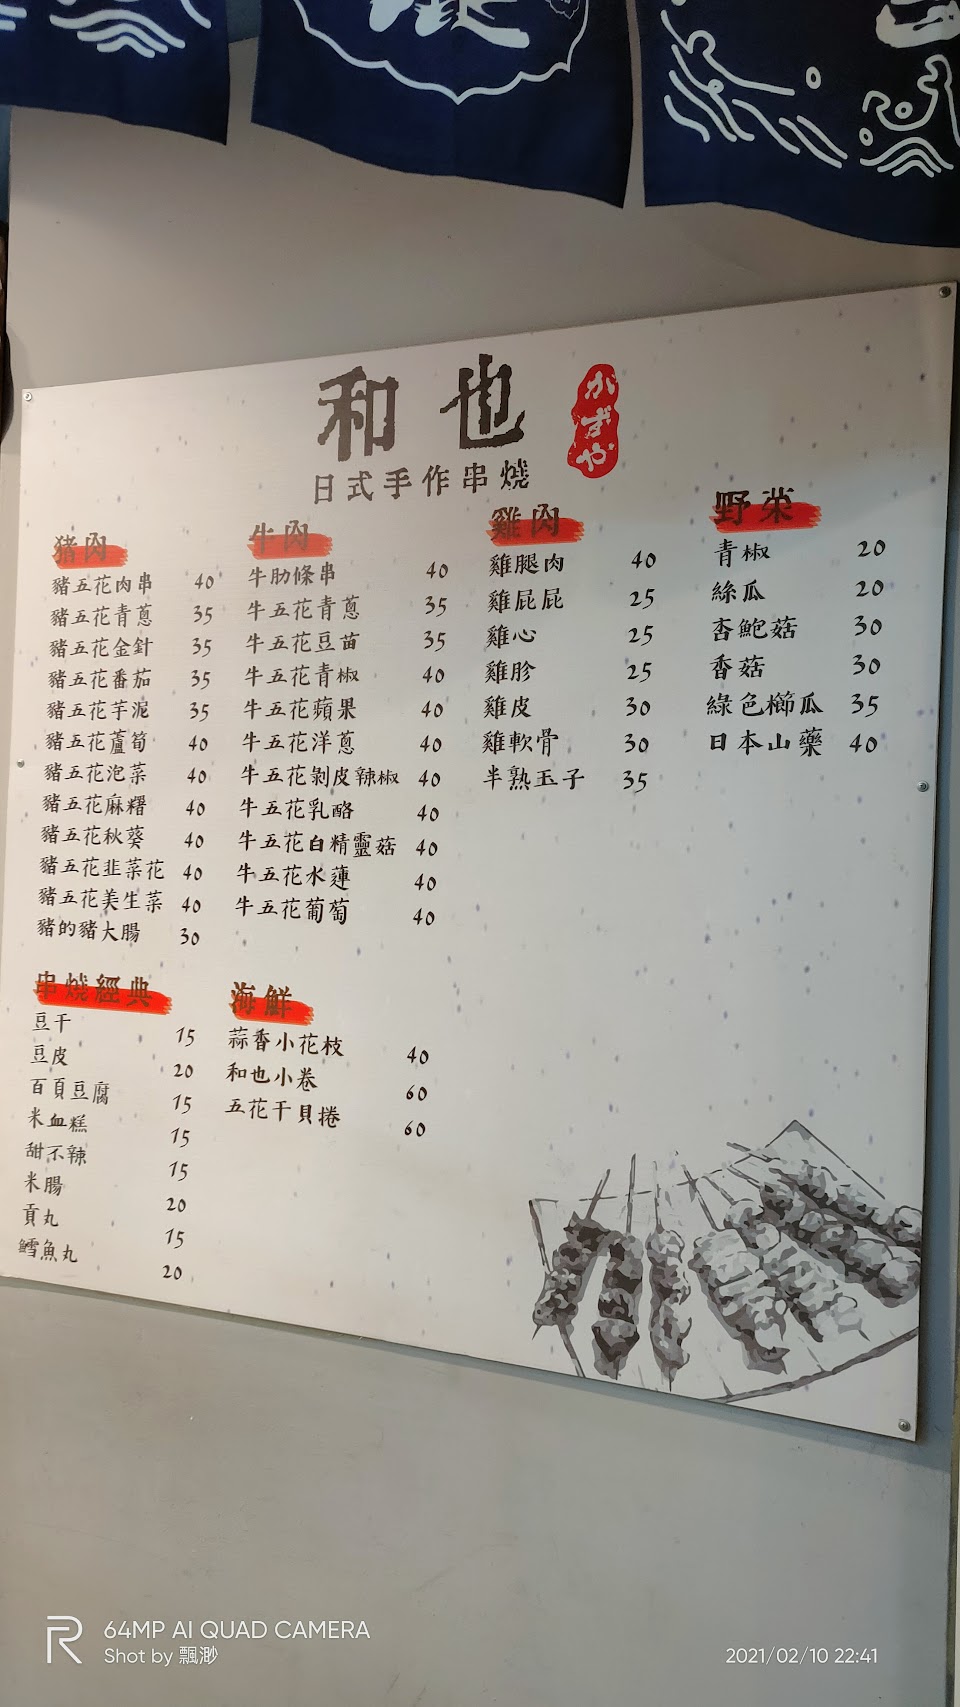 和也
かずや
日式手作串燒
豬肉
豬五花肉串 40
豬五花青蔥 35
豬五花金針 35
豬五花番茄 35
豬五花芋泥 35
豬五花蘆筍 40
豬五花泡菜 40
豬五花麻糬 40
豬五花秋葵 40
豬五花韭菜花 40
豬五花美生菜 40
豬的豬大腸 30
牛肉
牛肋條串 40
牛五花青蔥 35
牛五花豆苗 35
牛五花青椒 40
牛五花蘋果 40
牛五花洋蔥 40
牛五花剝皮辣椒 40
牛五花乳酪 40
牛五花白精靈菇 40
牛五花水蓮 40
牛五花葡萄 40
雞肉
雞腿肉 40
雞屁屁 25
雞心 25
雞胗 25
雞皮 30
雞軟骨 30
半熟玉子 35
野菜
青椒 20
絲瓜 20
杏鮑菇 30
香菇 30
綠色櫛瓜 35
日本山藥 40
串燒經典
豆干 15
豆皮 20
百頁豆腐 15
米血糕 15
甜不辣 15
米腸 20
貢丸 15
鱈魚丸 20
海鮮
蒜香小花枝 40
和也小卷 60
五花干貝捲 60
64MP AI QUAD CAMERA
Shot by 飄渺
2021/02/10 22:41